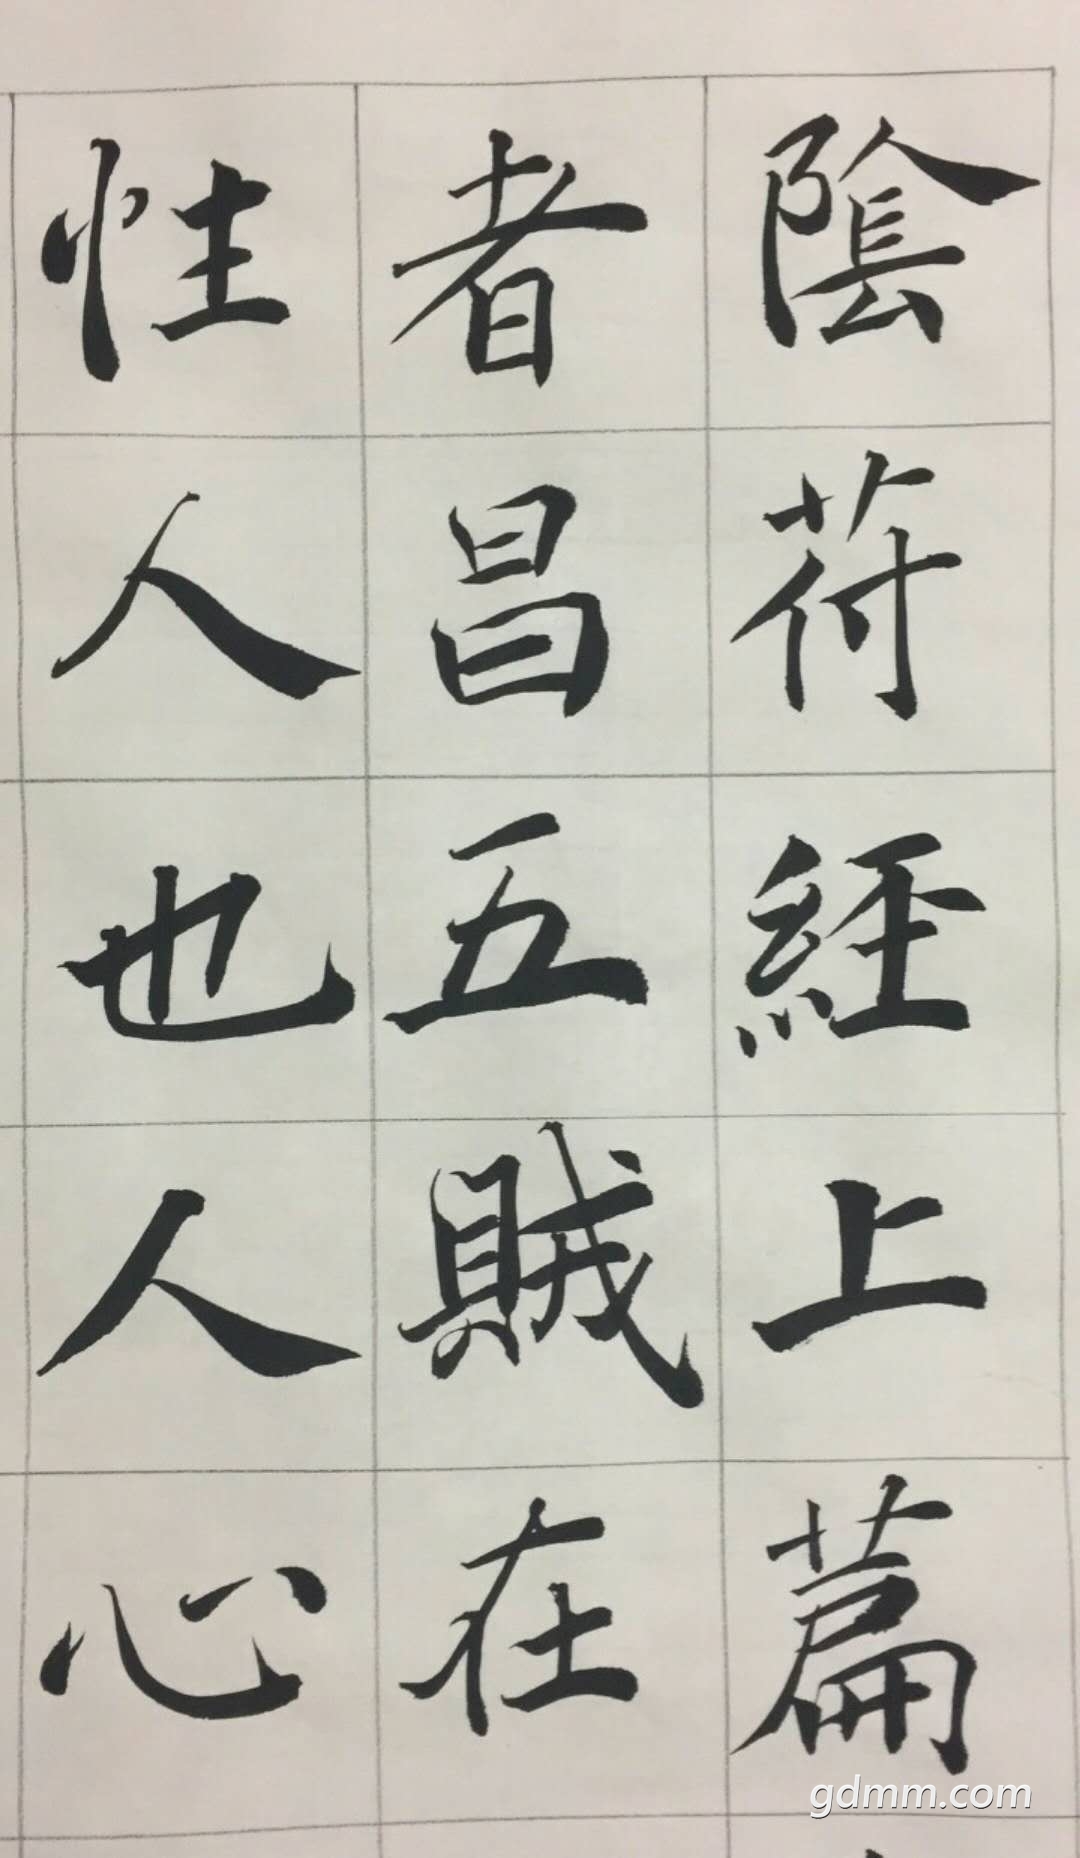 陰苻經上萹
者昌五賊在
性人也人心
gdmm.com